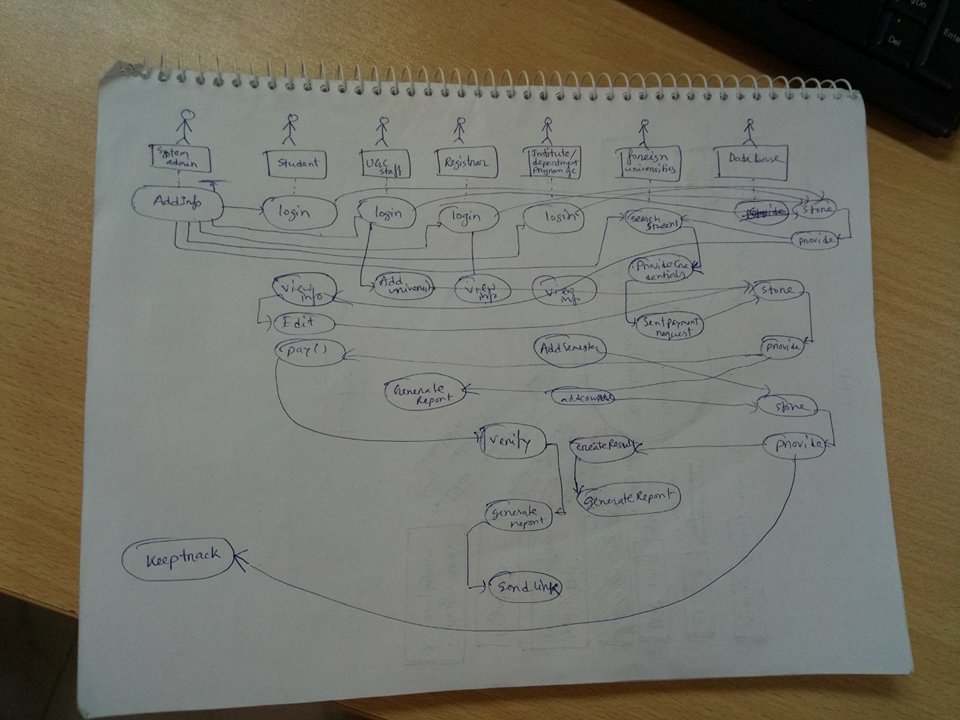 System
admin
Student
UGC
staff
Registrar
Intitute/
department
Program o/c
foreign
universities
Database
AddInfo
login
login
login
login
search
student
Provide
store
provide
Provide Cre
dentials
view
info
Add
universi
view
info
view
info
store
Edit
Sent payment
request
pay()
AddSemester
provide
Generate
Report
addcourses
store
verify
createResult
provide
generateReport
generate
report
keeptrack
Send link